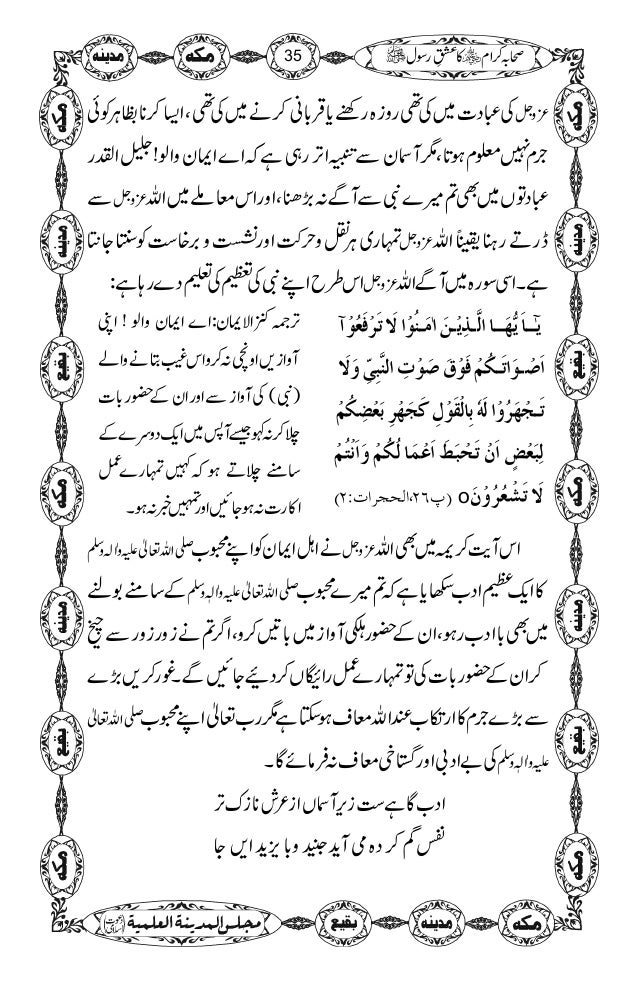 صحابہ کرام ﷡ کا عشق رسول ﷺ
35
مکہ
مدینہ
عزوجل کی عبادت میں کی تھی روزہ رکھنے یا قربانی کرنے میں کی تھی، ایسا کرنا بظاہر کوئی
جرم نہیں معلوم ہوتا، مگر آسمان سے تنبیہ اتر رہی ہے کہ اے ایمان والو! جلیل القدر
عبادتوں میں بھی تم میرے نبی سے آگے نہ بڑھنا، اور اس معاملے میں اللہ عزوجل سے
ڈرتے رہنا یقیناً اللہ عزوجل تمہاری ہر نقل و حرکت اور نشست و برخاست کو سنتا جانتا
ہے۔ اسی سورہ میں آگے اللہ عزوجل اس طرح اپنے نبی کی تعظیم کی تعلیم دے رہا ہے:
یٰۤاَیُّهَا الَّذِیْنَ اٰمَنُوْا لَا تَرْفَعُوْۤا
اَصْوَاتَكُمْ فَوْقَ صَوْتِ النَّبِیِّ وَلَا
تَجْهَرُوْا لَهٗ بِالْقَوْلِ كَجَهْرِ بَعْضِكُمْ
لِبَعْضٍ اَنْ تَحْبَطَ اَعْمَالُكُمْ وَاَنْتُمْ
لَا تَشْعُرُوْنَo (پ۲۶،الحجرات:۲)
ترجمہ کنزالایمان: اے ایمان والو! اپنی
آوازیں اونچی نہ کرو اس غیب بتانے والے
(نبی) کی آواز سے اور ان کے حضور بات
چلا کر نہ کہو جیسے آپس میں ایک دوسرے کے
سامنے چلاتے ہو کہ کہیں تمہارے عمل
اکارت نہ ہو جائیں اور تمہیں خبر نہ ہو۔
اس آیت کریمہ میں بھی اللہ عزوجل نے اہل ایمان کو اپنے محبوب صلی اللہ تعالیٰ علیہ والہ وسلم
کا ایک عظیم ادب سکھایا ہے کہ تم میرے محبوب صلی اللہ تعالیٰ علیہ والہ وسلم کے سامنے بولنے
میں بھی باادب رہو، ان کے حضور ہلکی آواز میں باتیں کرو، اگر تم نے زور زور سے چیخ
کر ان کے حضور بات کی تو تمہارے عمل رائیگاں کر دئیے جائیں گے۔ غور کریں بڑے
سے بڑے جرم کا ارتکاب عند اللہ معاف ہو سکتا ہے مگر رب تعالیٰ اپنے محبوب صلی اللہ تعالیٰ
علیہ والہ وسلم کی بے ادبی اور گستاخی معاف نہ فرمائے گا۔
ادب گاہے ست زیر آسماں از عرش نازک تر
نفس گم کردہ می آید جنید و بایزید ایں جا
مکہ
مدینہ
بقیع
مکہ
مدینہ
بقیع
مکہ
مکہ
مدینہ
بقیع
مکہ
مدینہ
بقیع
مکہ
مکہ
مدینہ
بقیع
مجلس المدینة العلمیة (دعوت اسلامی)